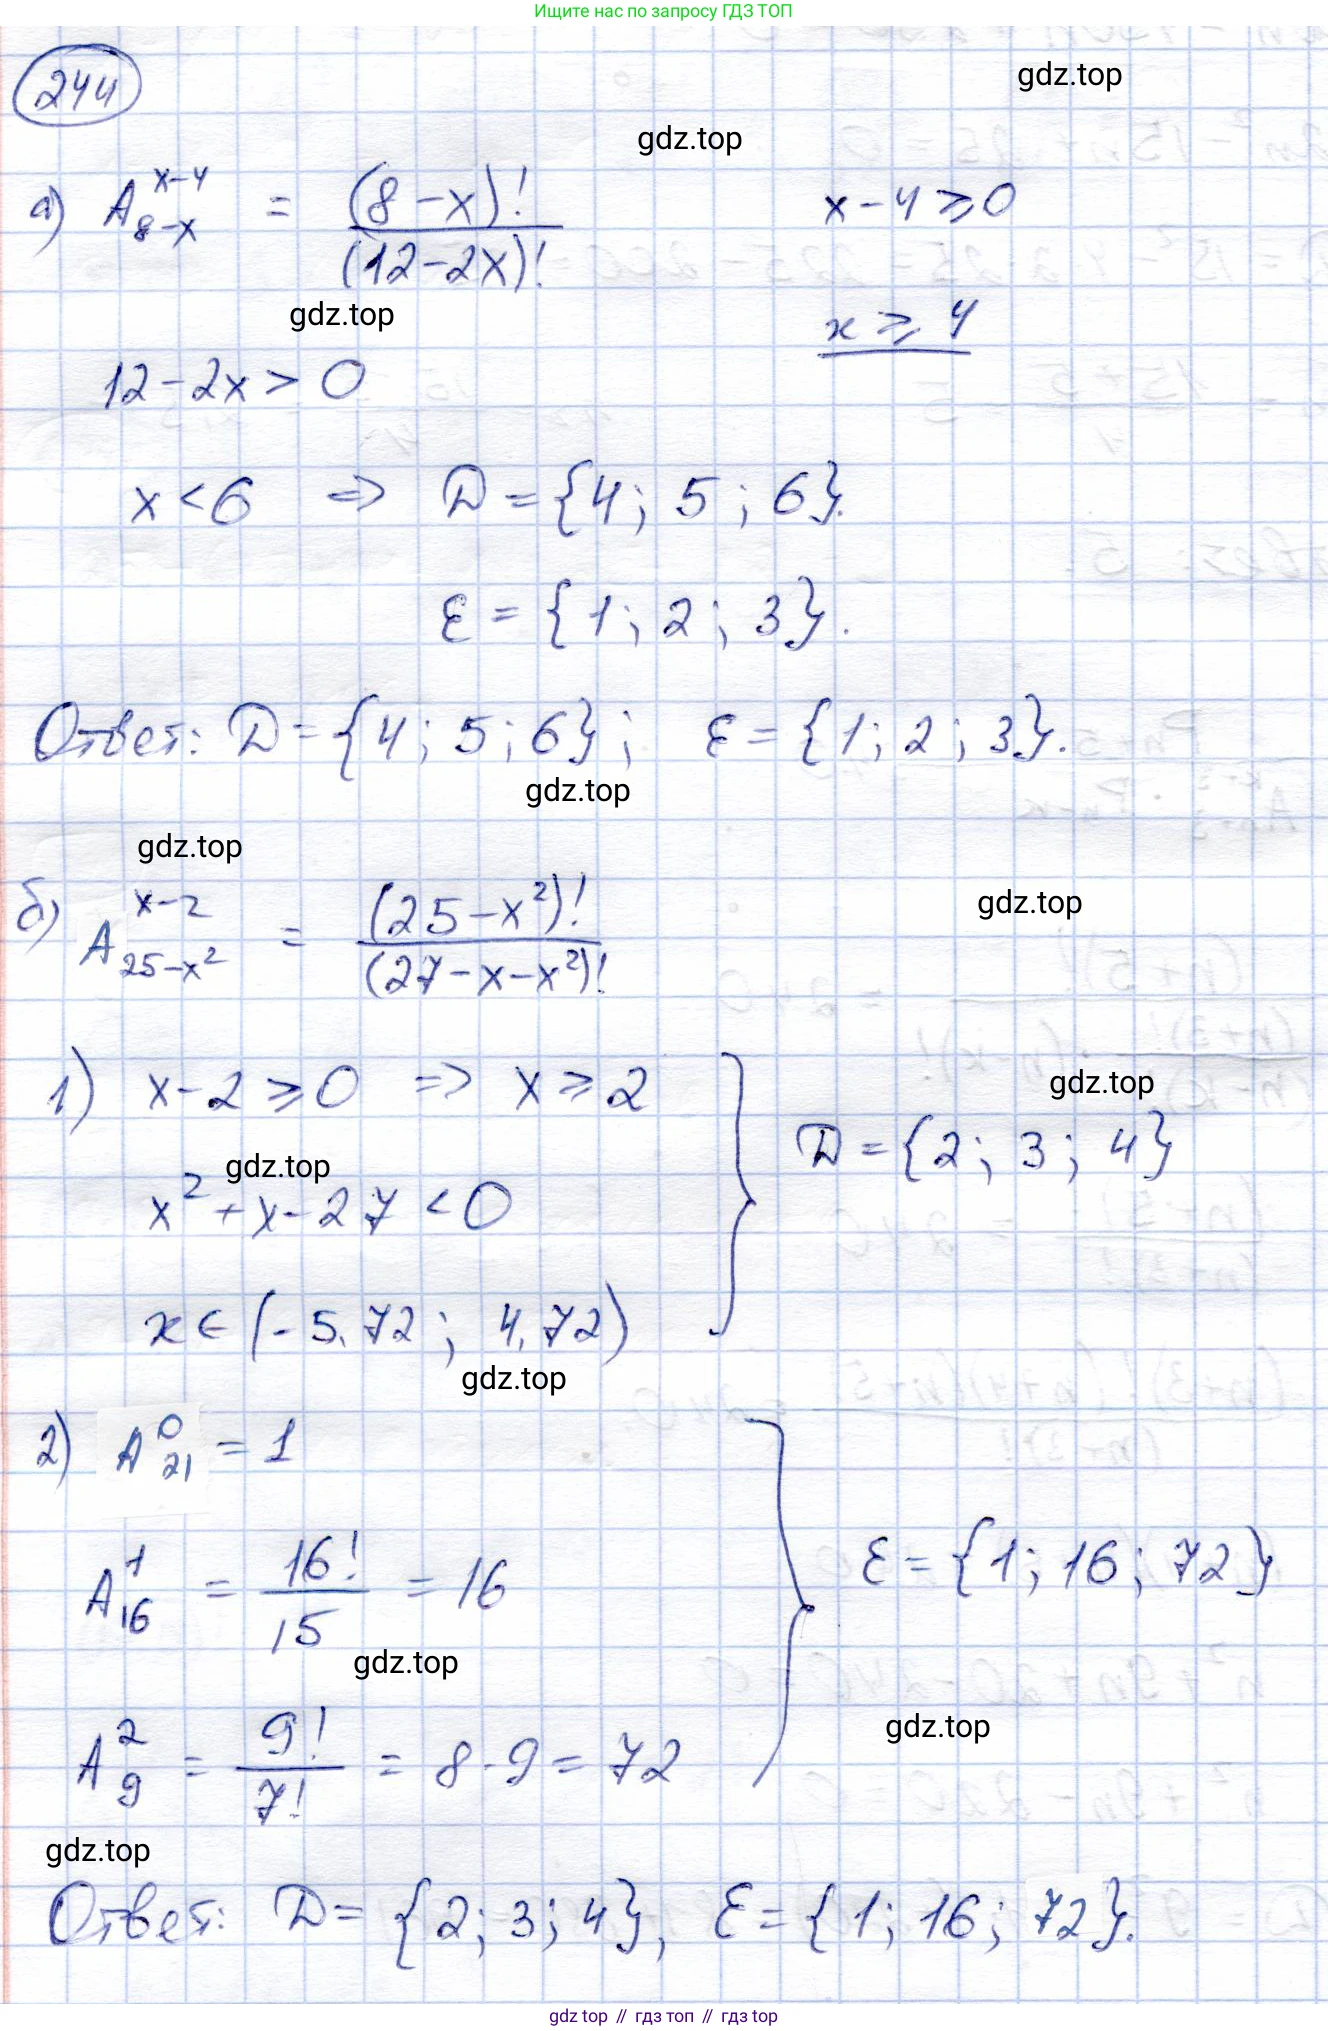 Ищите нас по запросу ГДЗ ТОП
244
gdz.top
gdz.top
а) A_{8-x}^{x-4} = (8-x)! / (12-2x)!
x-4 ⩾ 0
gdz.top
x ⩾ 4
12-2x > 0
x < 6 ⇒ D = {4; 5; 6}.
E = {1; 2; 3}.
Ответ: D = {4; 5; 6}; E = {1; 2; 3}.
gdz.top
gdz.top
gdz.top
б) A_{25-x²}^{x-2} = (25-x²)! / (27-x-x²)!
1) x-2 ⩾ 0 ⇒ x ⩾ 2
gdz.top
D = {2; 3; 4}
gdz.top
x² + x - 27 < 0
x ∈ (-5,72; 4,72)
gdz.top
2) A_{21}^{0} = 1
A_{16}^{1} = 16! / 15 = 16
E = {1; 16; 72}
gdz.top
gdz.top
A_{9}^{2} = 9! / 7! = 8·9 = 72
gdz.top
Ответ: D = {2; 3; 4}, E = {1; 16; 72}.
gdz top // гдз топ // гдз top